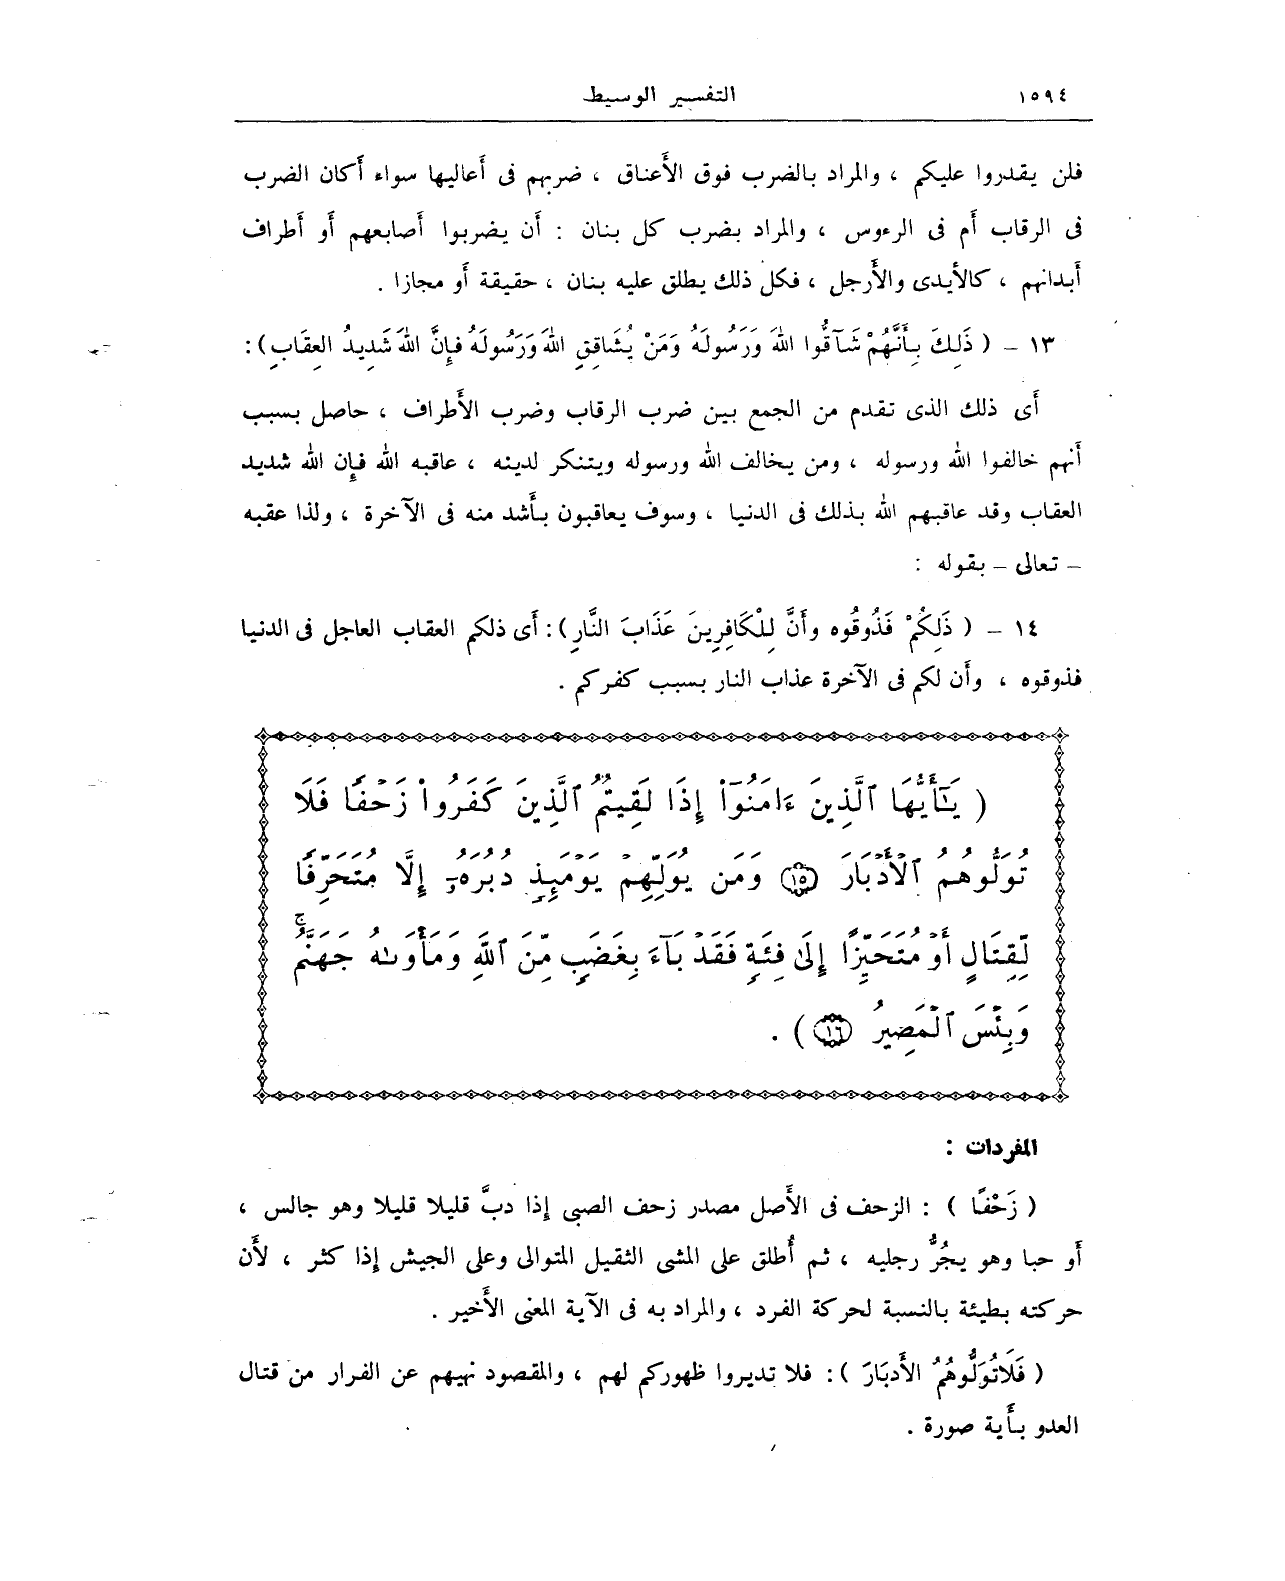 ١٥٩٤
التفسير الوسيط
فلن يقدروا عليكم ، والمراد بالضرب فوق الأَعناق ، ضربهم فى أَعاليها سواء أَكان الضرب
فى الرقاب أَم فى الرءوس ، والمراد بضرب كل بنان : أَن يضربوا أَصابعهم أَو أَطراف
أَبدانهم ، كالأَيدى والأَرجل ، فكل ذلك يطلق عليه بنان ، حقيقة أَو مجازا .
١٣ – ( ذَلِكَ بِأَنَّهُمْ شَآقُّوا اللهَ وَرَسُولَهُ وَمَنْ يُشَاقِقِ اللهَ وَرَسُولَهُ فإِنَّ اللهَ شَدِيدُ العِقَابِ ) :
أَى ذلك الذى تقدم من الجمع بين ضرب الرقاب وضرب الأَطراف ، حاصل بسبب
أَنهم خالفوا الله ورسوله ، ومن يخالف الله ورسوله ويتنكر لدينه ، عاقبه الله فإِن الله شديد
العقاب وقد عاقبهم الله بذلك فى الدنيا ، وسوف يعاقبون بأَشد منه فى الآخرة ، ولذا عقبه
– تعالى – بقوله :
١٤ – ( ذَلِكُمْ فَذُوقُوه وأَنَّ لِلْكَافِرِينَ عَذَابَ النَّارِ ) : أَى ذلكم العقاب العاجل فى الدنيا
فذوقوه ، وأَن لكم فى الآخرة عذاب النار بسبب كفركم .
( يَـٰٓأَيُّهَا ٱلَّذِينَ ءَامَنُوٓاْ إِذَا لَقِيتُمُ ٱلَّذِينَ كَفَرُواْ زَحْفًا فَلَا
تُوَلُّوهُمُ ٱلْأَدْبَارَ ۝١٥ وَمَن يُوَلِّهِمْ يَوْمَئِذٍ دُبُرَهُۥٓ إِلَّا مُتَحَرِّفًا
لِّقِتَالٍ أَوْ مُتَحَيِّزًا إِلَىٰ فِئَةٍ فَقَدْ بَآءَ بِغَضَبٍ مِّنَ ٱللَّهِ وَمَأْوَىٰهُ جَهَنَّمُ ۚ
وَبِئْسَ ٱلْمَصِيرُ ۝١٦ ) .
المفردات :
( زَحْفًا ) : الزحف فى الأَصل مصدر زحف الصبى إِذا دبَّ قليلا قليلا وهو جالس ،
أَو حبا وهو يجُرُّ رجليه ، ثم أُطلق على المشى الثقيل المتوالى وعلى الجيش إِذا كثر ، لأَن
حركته بطيئة بالنسبة لحركة الفرد ، والمراد به فى الآية المعنى الأَخير .
( فَلَا تُوَلُّوهُمُ الأَدبَارَ ) : فلا تديروا ظهوركم لهم ، والمقصود نهيهم عن الفرار من قتال
العدو بأَية صورة .